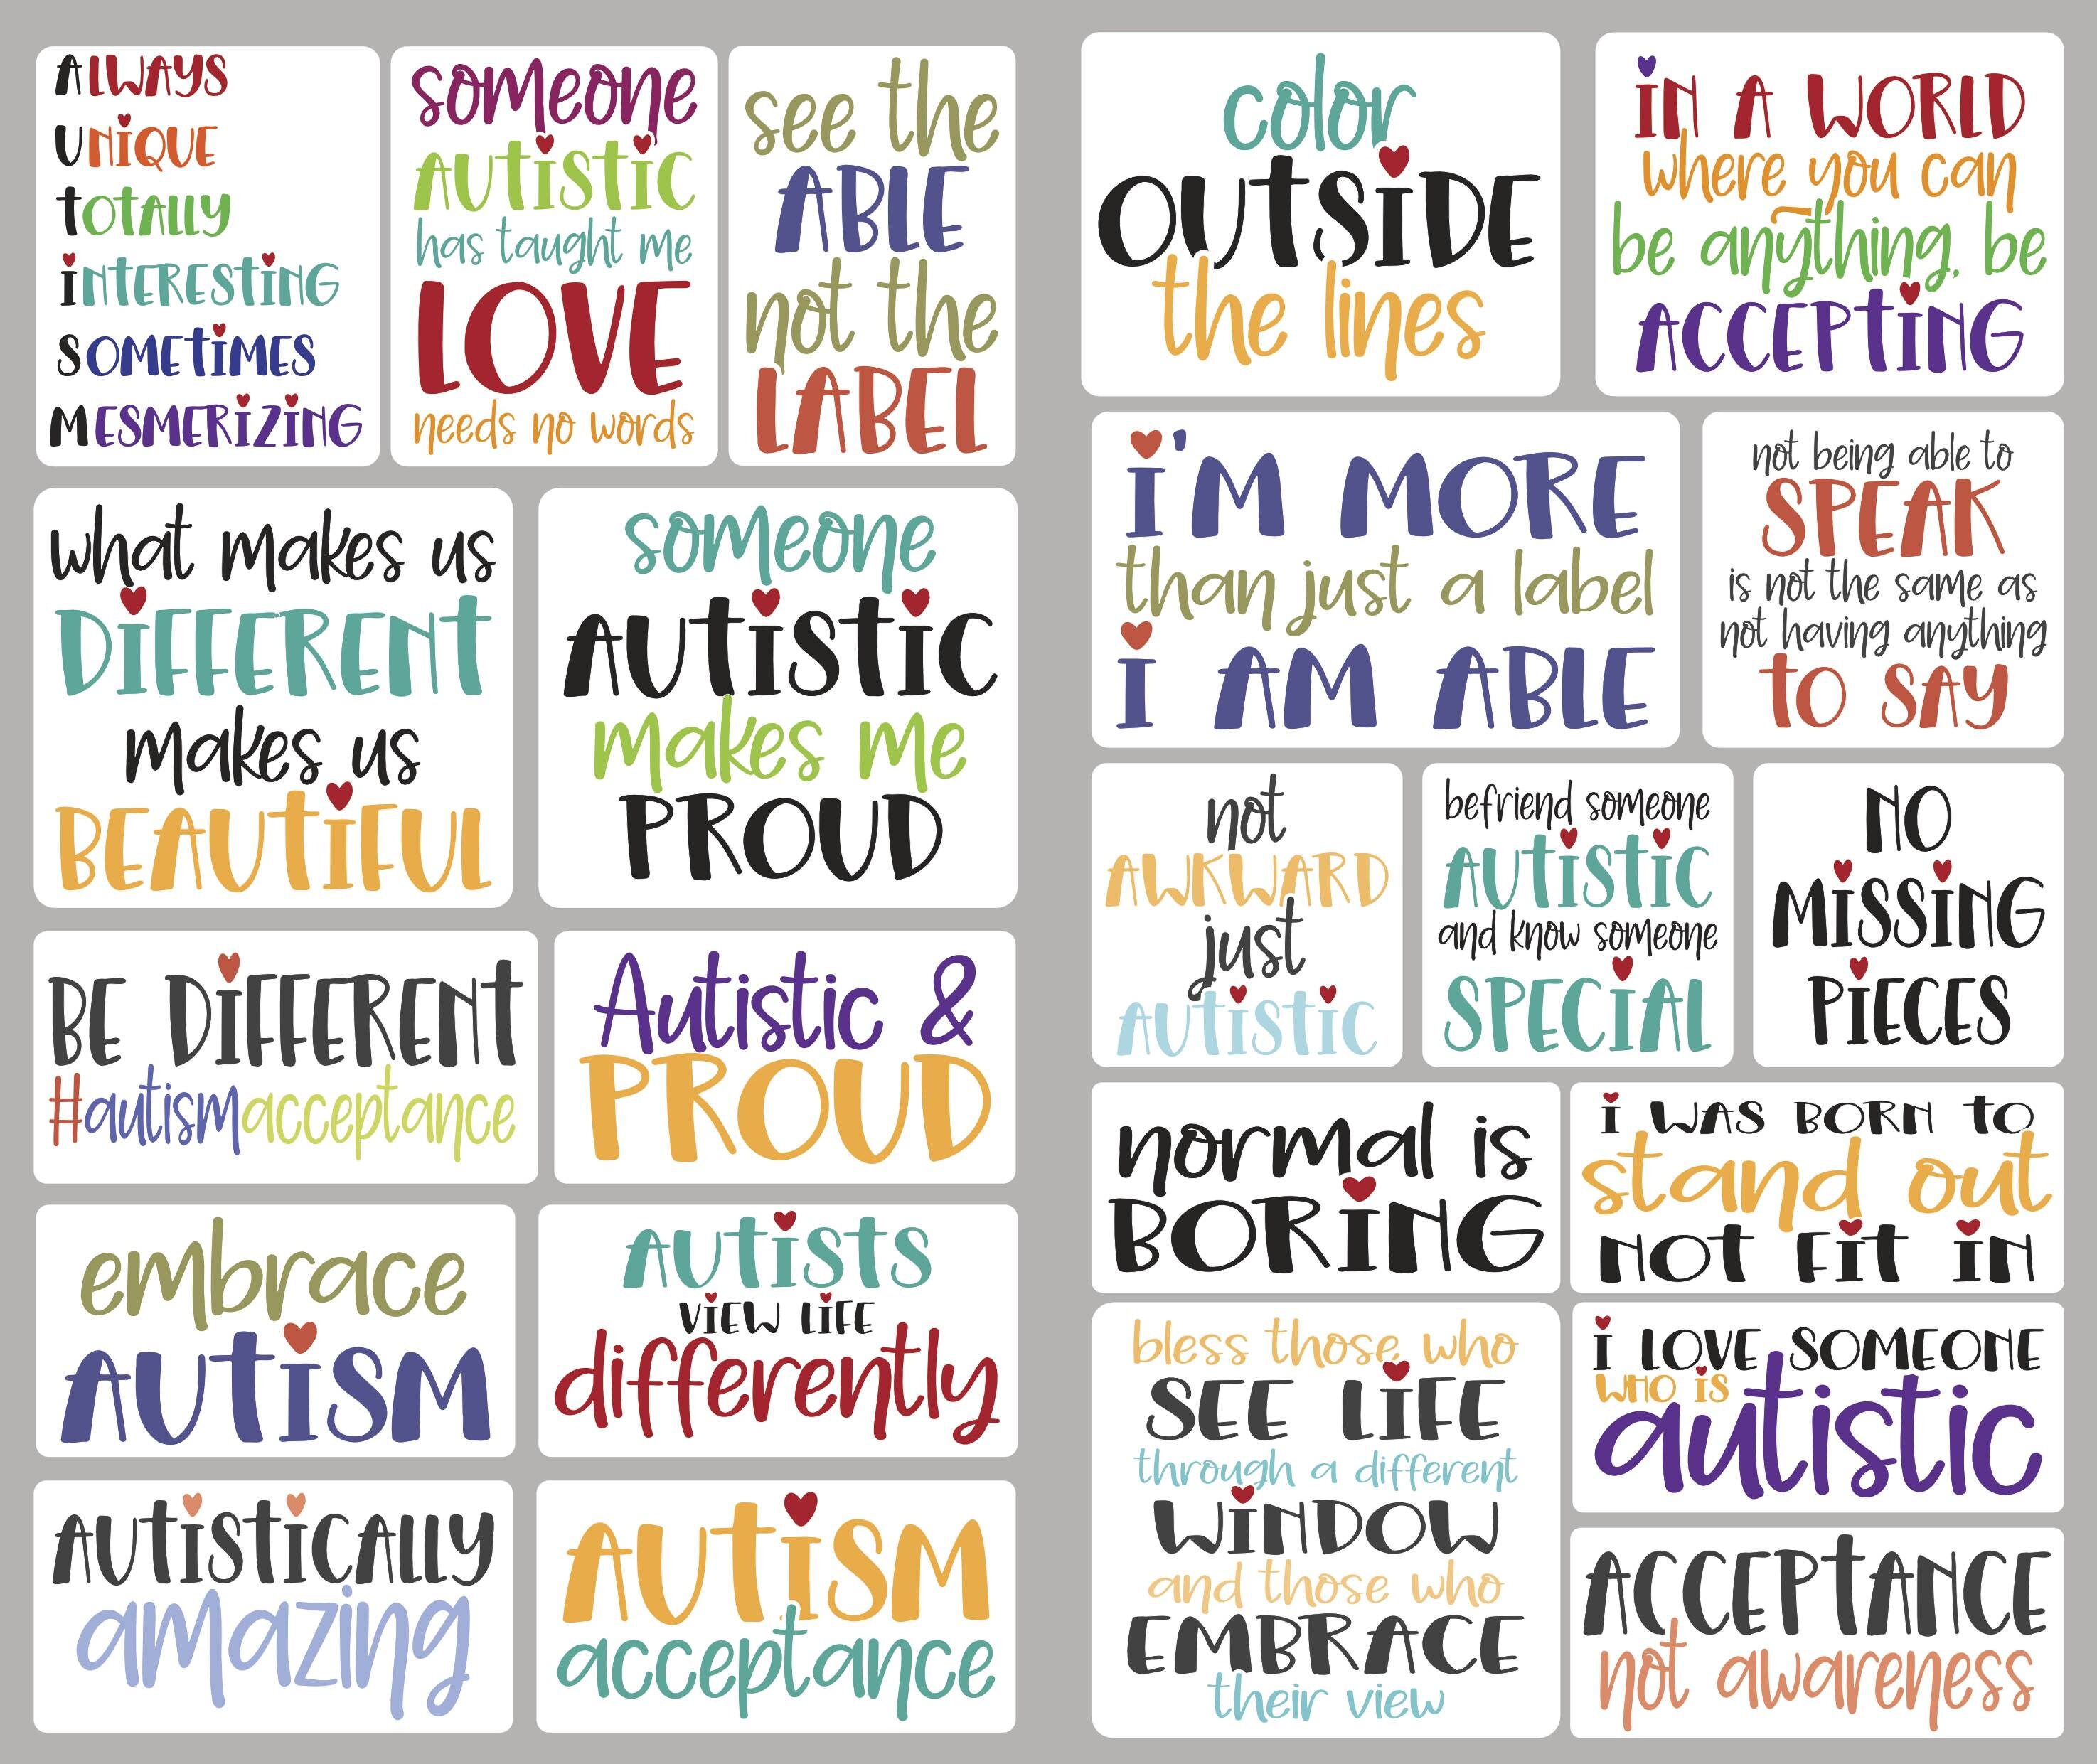 ALWAYS
UNiQUE
tOtALLY
iNtEREStiNG
SOMEtiMES
MESMERiZiNG
someone
AUtiStiC
has taught me
LOVE
needs no words
see the
ABLE
not the
LABEL
what makes us
DiFFERENt
makes us
BEAUtiFUL
someone
AUtiStiC
makes me
PROUD
BE DiFFERENt
#autismacceptance
Autistic &
PROUD
embrace
AUtiSM
AUtiStS
ViEW LiFE
differently
AUtiStiCALLY
amazing
AUtiSM
acceptance
color
OUtSiDE
the lines
iN A WORLD
where you can
be anything, be
ACCEPtiNG
i'M MORE
than just a label
i AM ABLE
not being able to
SPEAK
is not the same as
not having anything
tO SAY
not
AWKWARD
just
AUtiStiC
befriend someone
AUtiStiC
and know someone
SPECiAL
NO
MiSSiNG
PiECES
normal is
BORiNG
i WAS BORN tO
stand out
NOt Fit iN
bless those who
SEE LiFE
through a different
WiNDOW
and those who
EMBRACE
their view
i LOVE SOMEONE
WHO iS
autistic
ACCEPtANCE
not awareness